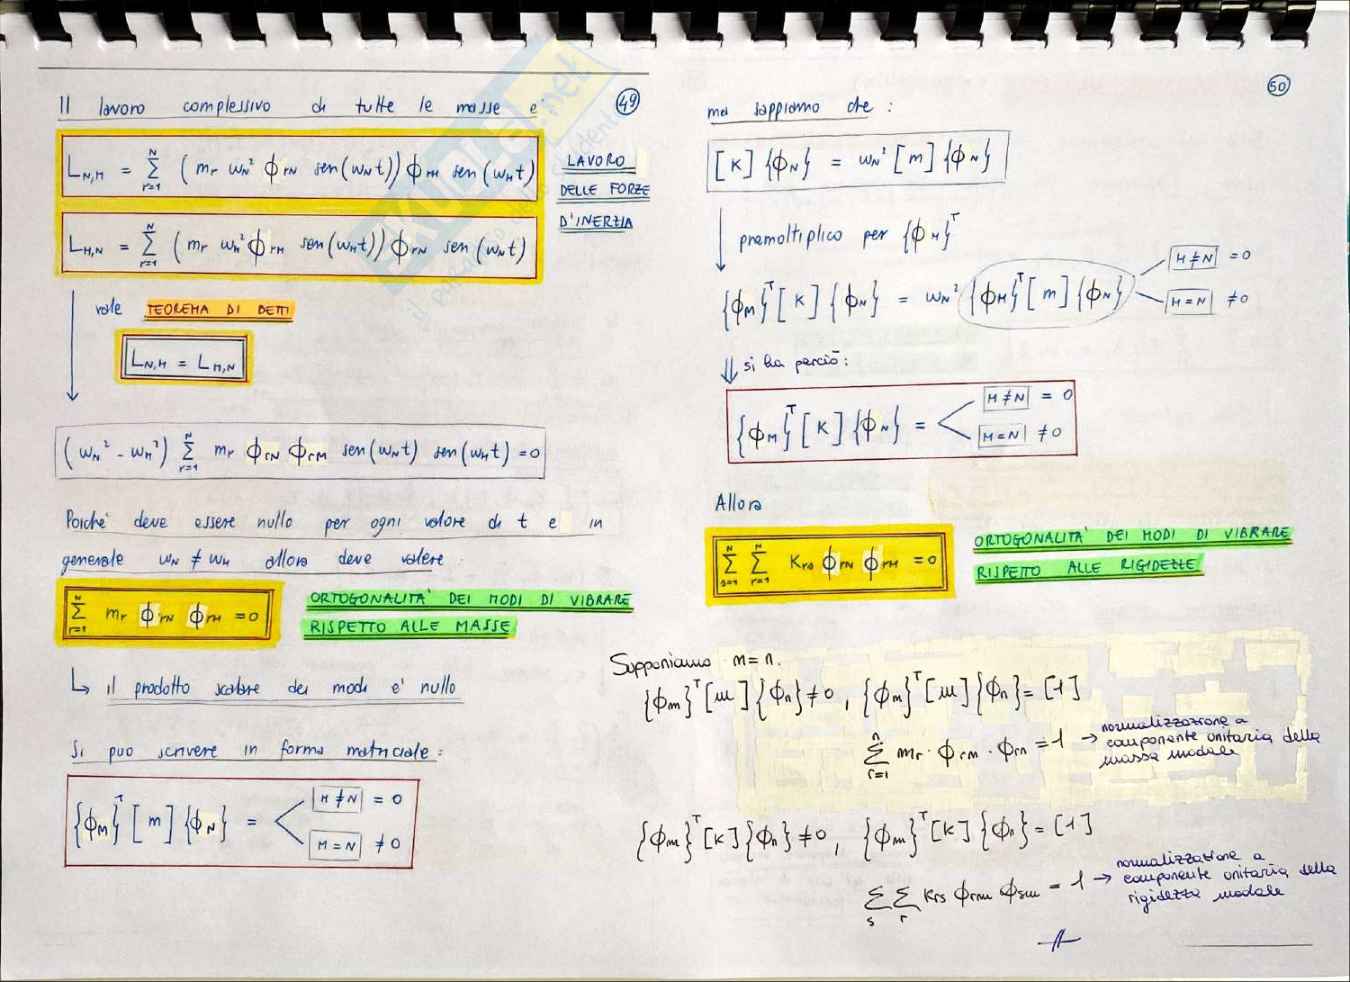 Il lavoro complessivo di tutte le masse e'
49
L_{N,M} = \sum_{r=1}^{N} ( m_r ω_N² ϕ_{rN} sen(ω_N t)) ϕ_{rM} sen(ω_M t)
L_{M,N} = \sum_{r=1}^{N} ( m_r ω_M² ϕ_{rM} sen(ω_M t)) ϕ_{rN} sen(ω_N t)
LAVORO
DELLE FORZE
D'INERZIA
vale TEOREMA DI BETTI
L_{N,M} = L_{M,N}
(ω_N² - ω_M²) \sum_{r=1}^{N} m_r ϕ_{rN} ϕ_{rM} sen(ω_N t) sen(ω_M t) = 0
Poiché deve essere nullo per ogni valore di t e in
generale ω_N ≠ ω_M allora deve valere:
\sum_{r=1}^{N} m_r ϕ_{rN} ϕ_{rM} = 0
ORTOGONALITA' DEI MODI DI VIBRARE
RISPETTO ALLE MASSE
↳ il prodotto scalare dei modi e' nullo
Si può scrivere in forma matriciale:
{ϕ_M}^T [m] {ϕ_N} =
M ≠ N = 0
M = N ≠ 0
50
ma sappiamo che:
[K] {ϕ_N} = ω_N² [m] {ϕ_N}
premoltiplico per {ϕ_M}^T
{ϕ_M}^T [K] {ϕ_N} = ω_N² {ϕ_M}^T [m] {ϕ_N}
M ≠ N = 0
M = N ≠ 0
⇓ si ha perciò:
{ϕ_M}^T [K] {ϕ_N} =
M ≠ N = 0
M = N ≠ 0
Allora
\sum_{s=1}^{N} \sum_{r=1}^{N} K_{rs} ϕ_{rN} ϕ_{rM} = 0
ORTOGONALITA' DEI MODI DI VIBRARE
RISPETTO ALLE RIGIDEZZE
Supponiamo m = n.
{ϕ_m}^T [m] {ϕ_n} ≠ 0, {ϕ_m}^T [m] {ϕ_n} = [1]
\sum_{r=1}^{n} m_r · ϕ_{rm} · ϕ_{rn} = 1 → normalizzazione a
componente unitaria della
massa modale
{ϕ_m}^T [K] {ϕ_n} ≠ 0, {ϕ_m}^T [K] {ϕ_n} = [1]
\sum_s \sum_r K_{rs} ϕ_{rm} ϕ_{sm} = 1 → normalizzazione a
componente unitaria della
rigidezza modale